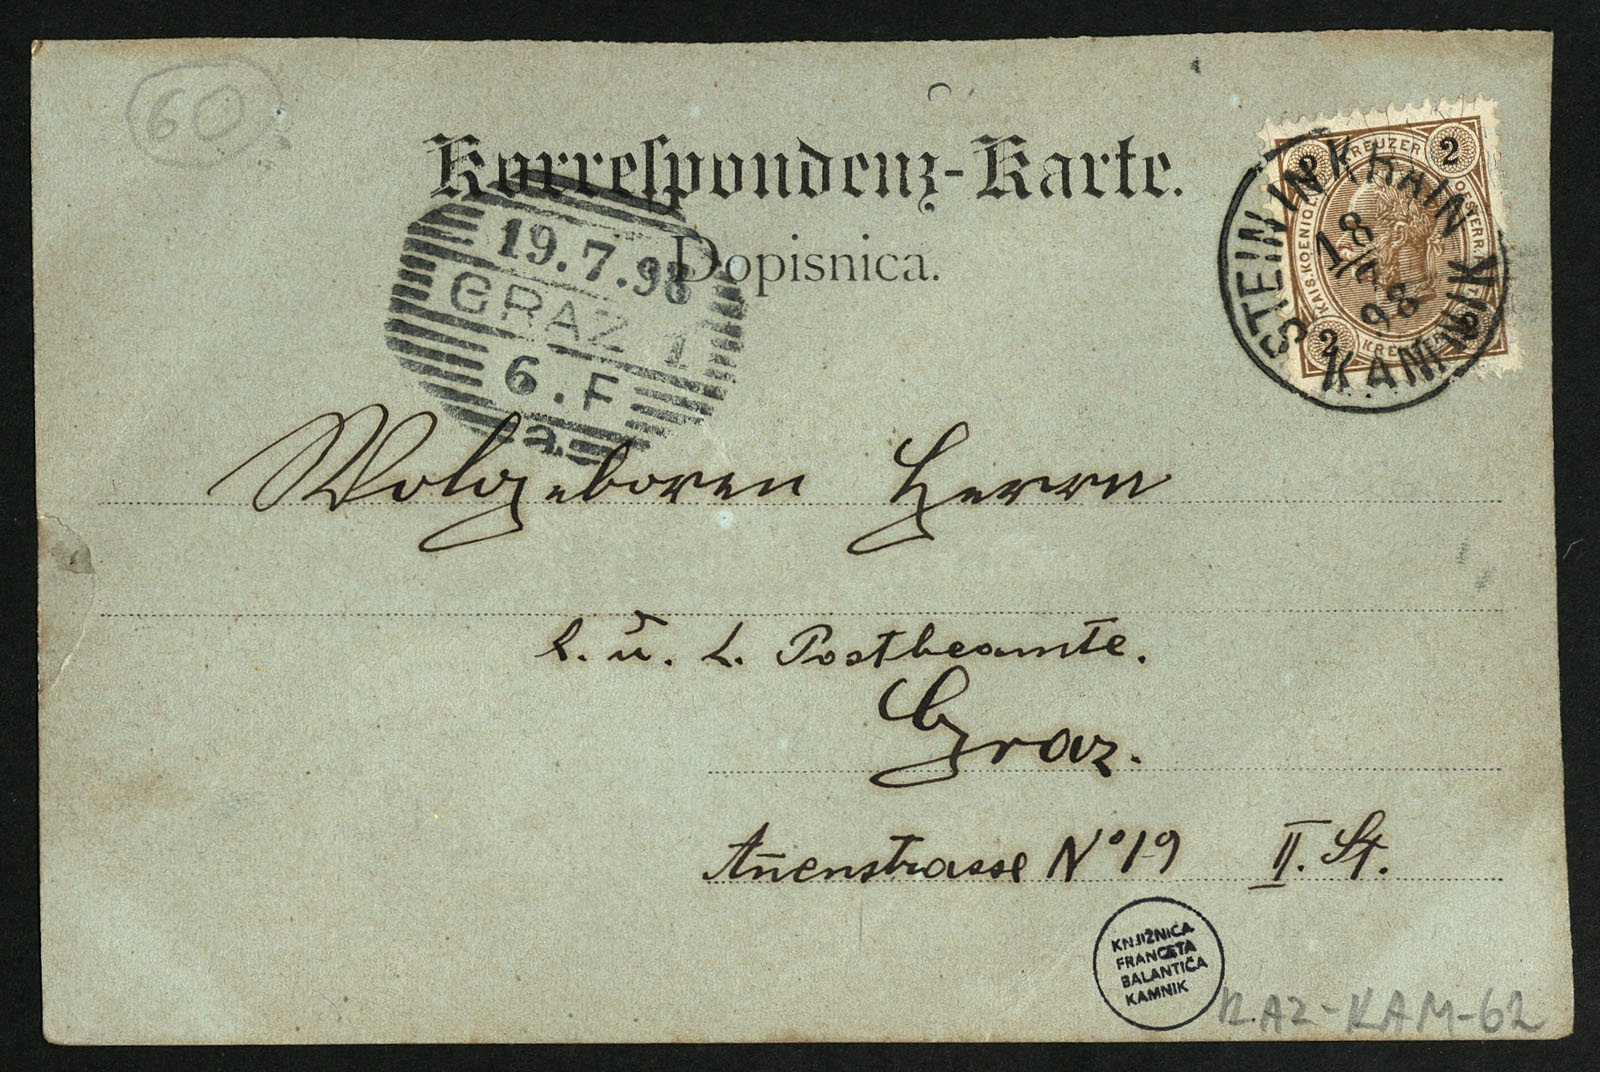 60
Korrespondenz-Karte.
Dopisnica.
2 KREUZER 2
KAIS. KÖENIGL. OESTERR.
2 KREUZER 2
STEIN IN KRAIN
18/7 98
KAMNIK
19.7.98
GRAZ 1
6.F
a
Wolgeboren Herrn
k. u. k. Postbeamte.
Graz.
An̄enstrasse Nº 19 II. St.
KNJIŽNICA
FRANCETA
BALANTIČA
KAMNIK
RAZ-KAM-62